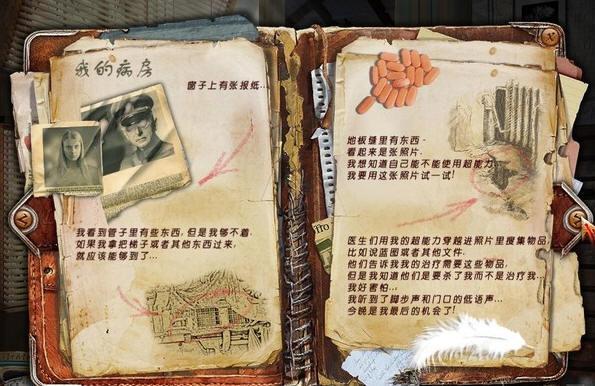 我的病房
窗子上有张报纸...
我看到管子里有些东西,但是我够不着.
如果我拿把梯子或者其他东西过来,
就应该能够到了...
地板缝里有东西-
看起来是张照片.
我想知道自己能不能使用超能力.
我要用这张照片试一试!
医生们用我的超能力穿越进照片里搜集物品,
比如说蓝图或者其他文件.
他们告诉我我的治疗需要这些物品,
但是我知道他们是要杀了我而不是治疗我...
我好害怕...
我听到了脚步声和门口的低语声...
今晚是我最后的机会了!